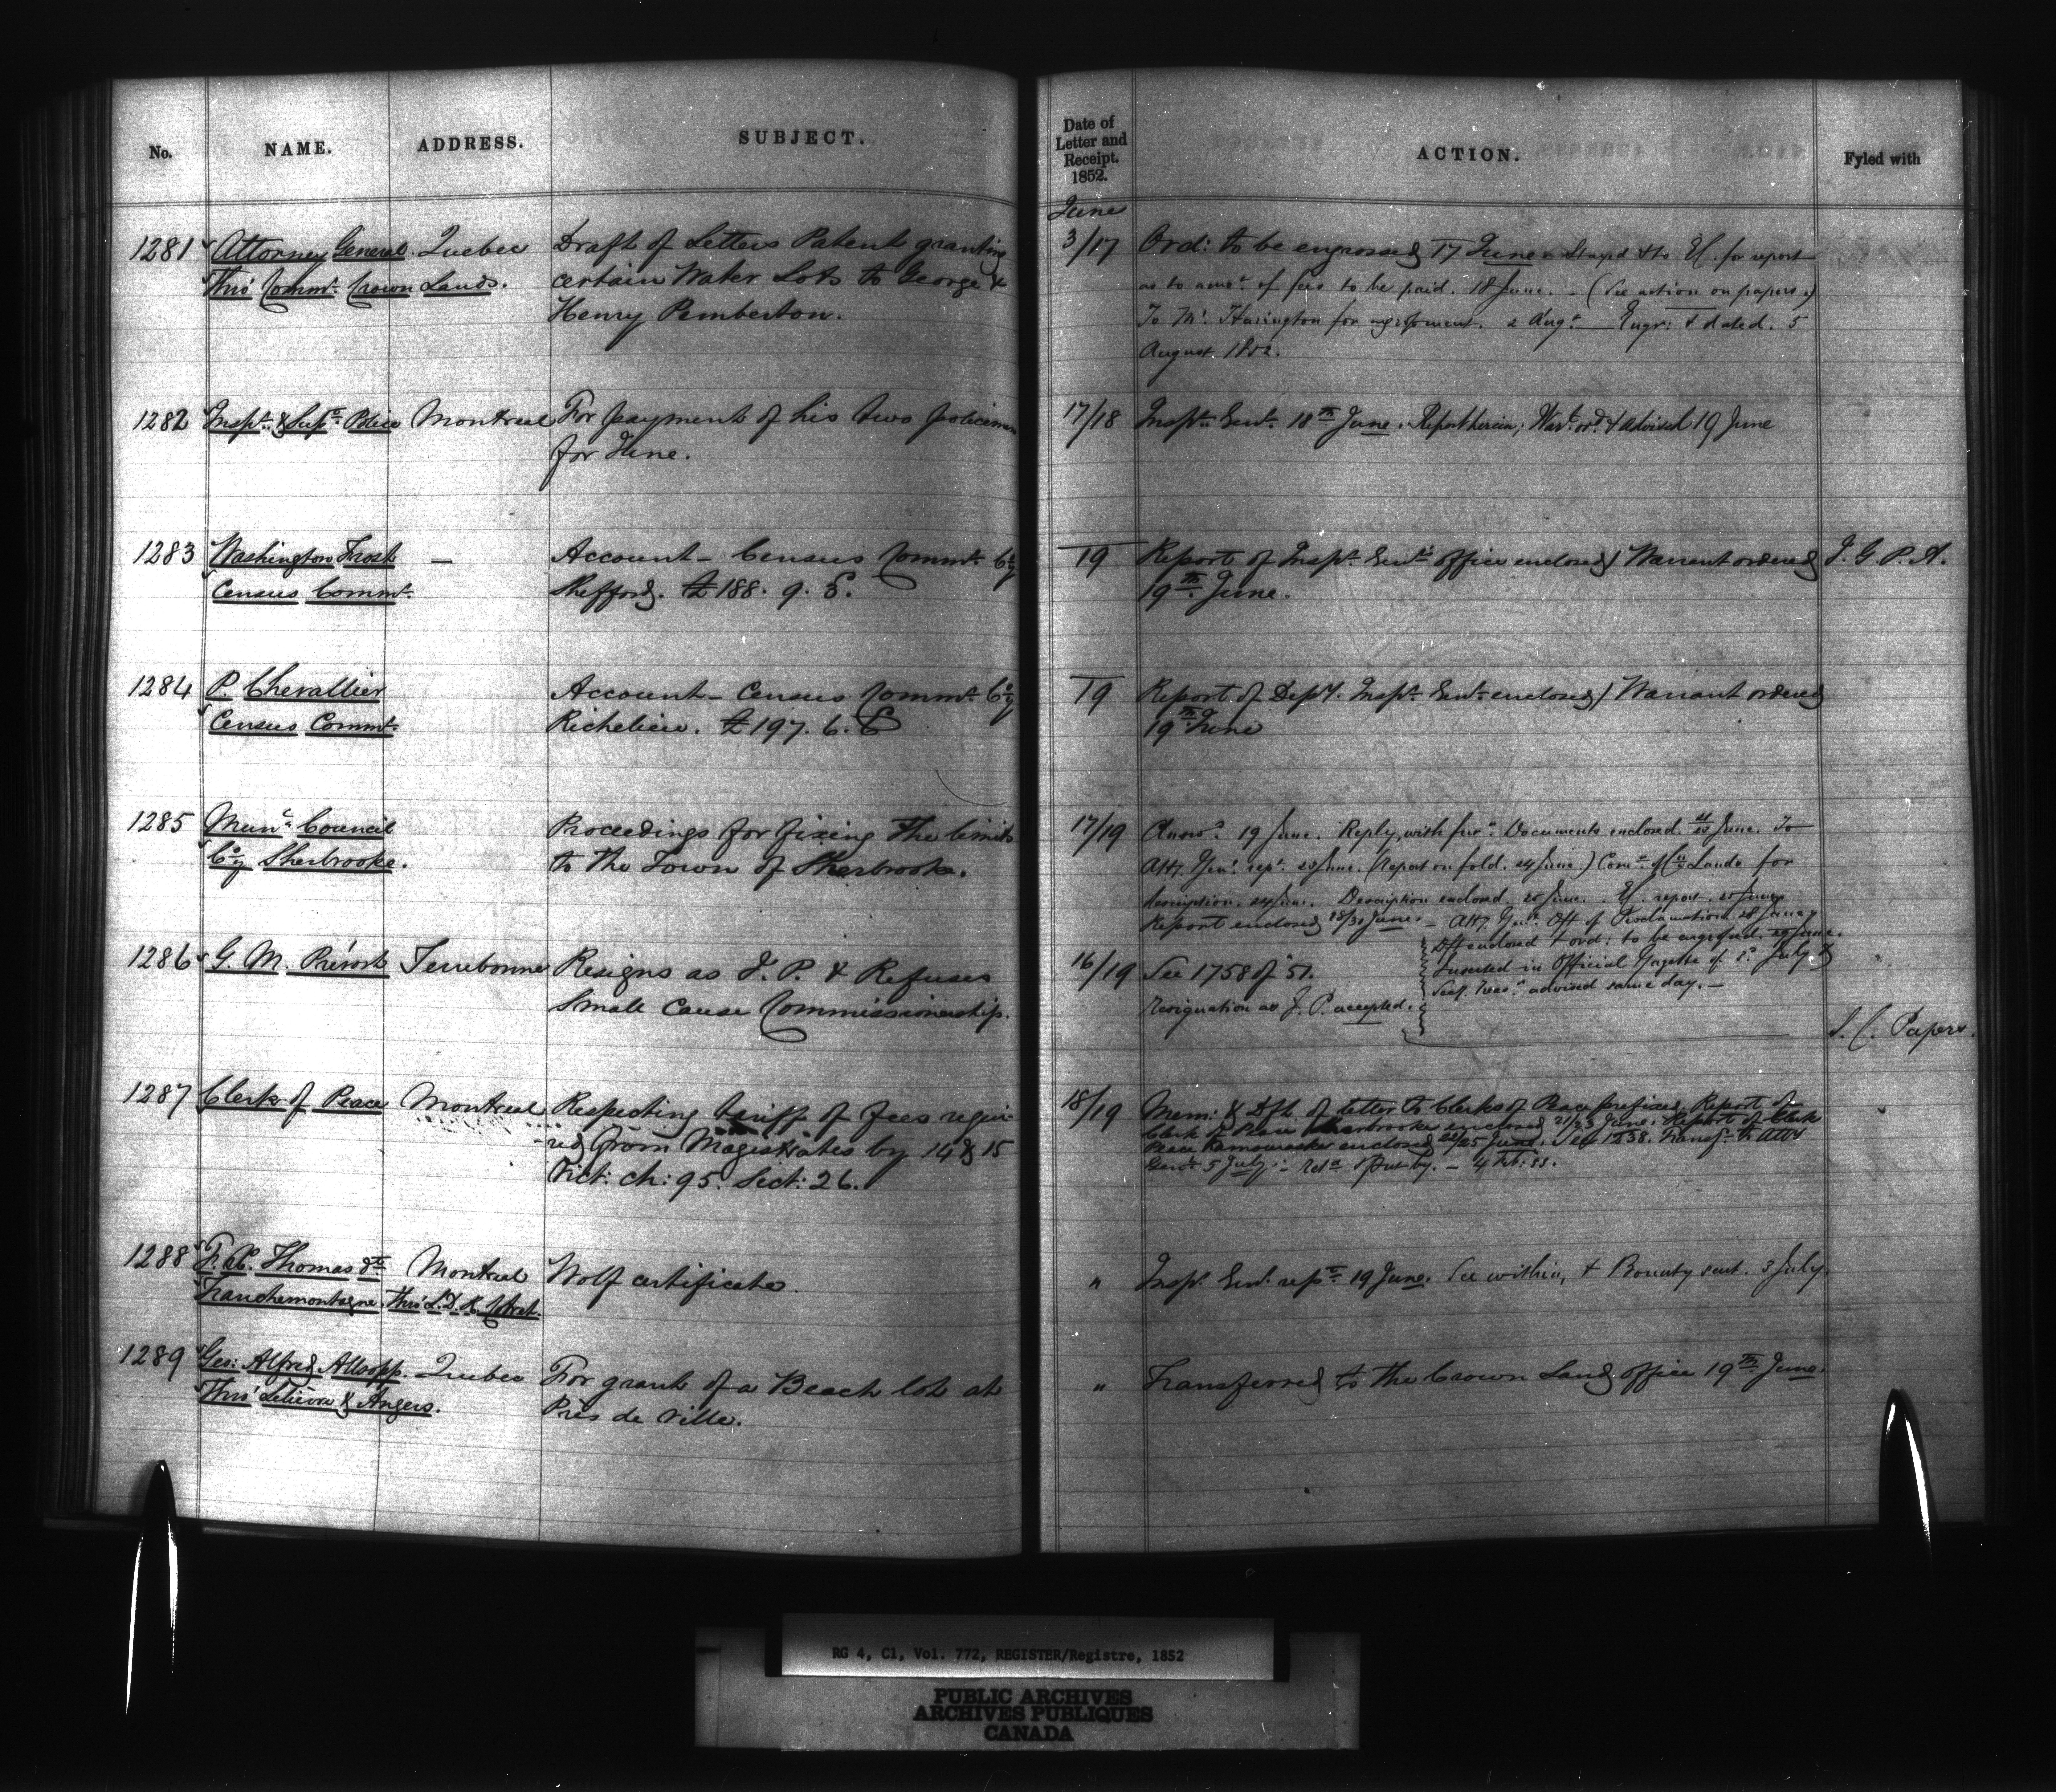 No. NAME. ADDRESS. SUBJECT.
1281 Attorney General Quebec Draft of Letters Patent granting
Thro' Commr. Crown Lands. certain Water Lots to George &
Henry Pemberton.
1282 Inspr. & Supt. Police Montreal For payment of his two policemen
for June.
1283 Washington Frost — Account - Census Commr. Coy
Census Commr. Shefford. £188. 9. 8.
1284 P. Chevallier Account - Census Commr. Coy
Census Commr. Richelieu. £197. 6. 6
1285 Munc. Council Proceedings for fixing the limits
Coy Sherbrooke. to the Town of Sherbrooke.
1286 G. M. Prévost Terrebonne Resigns as J. P. & Refuses
Small Cause Commissionership.
1287 Clerk of Peace Montreal Respecting tariff of fees requi-
red from Magistrates by 14 & 15
Vict: ch: 95. Sect: 26.
1288 F. X. Thomas dt Montreal Wolf certificate.
Tranchemontagne. Thro' L. D. R. Cotret.
1289 Geo: Alfred Allsopp. Quebec For grant of a Beach lot at
Thro' Lelièvre & Angers. Près de Ville.
Date of
Letter and
Receipt.
1852.
ACTION. Fyled with
June
3/17 Ord: to be engrossed 17 June. Stayed & to for report
as to amot. of fees to be paid. 18 June. - (See action on papers.)
To Mr. Harington for engrossment. 2 Augt. — Engr: & dated. 5
August 1852.
17/18 Inspr. Genl. 18th June. Report herein; Wart. ord. & advised 19 June
19 Report of Inspr. Genl's office enclosed / Warrant ordered J. G. P. A.
19th June.
19 Report of Depy. Inspr. Genl. enclosed / Warrant ordered
19th June
17/19 Answd. 19 June. Reply, with furr. Documents enclosed. June. To
Atty. Genl. rept. 23 June. (Report on fold. 24 June.) Comr. of Cn. Lands for
description. 24 June. Description enclosed. 25 June. report. 25 June
Report enclosed 28/30 June. - Atty. Genl. Dft of Proclamation 28 June
Dft enclosed & ord: to be engrossed. 29 June.
Inserted in Official Gazette of July &
advised same day. —
16/19 See 1758 of '51.
Resignation as J. P. accepted.
S. C. Papers.
18/19 Mem: & Dft of letter to Clerks of Peace prefixed. Report of
Clerk of Peace Sherbrooke enclosed 21/23 June. Report of Clerk
Peace Kamouraska enclosed 22/25 June. See 1238. Transfd. to Atty
Genl. 5 July. - Retd. & Put by. - 4 Feb: 53.
" Inspr. Genl. rept. 19 June. See within, & Bounty sent. 3 July.
" Transferred to the Crown Land office 19th June.
RG 4, C1, Vol. 772, REGISTER/Registre, 1852
PUBLIC ARCHIVES
ARCHIVES PUBLIQUES
CANADA